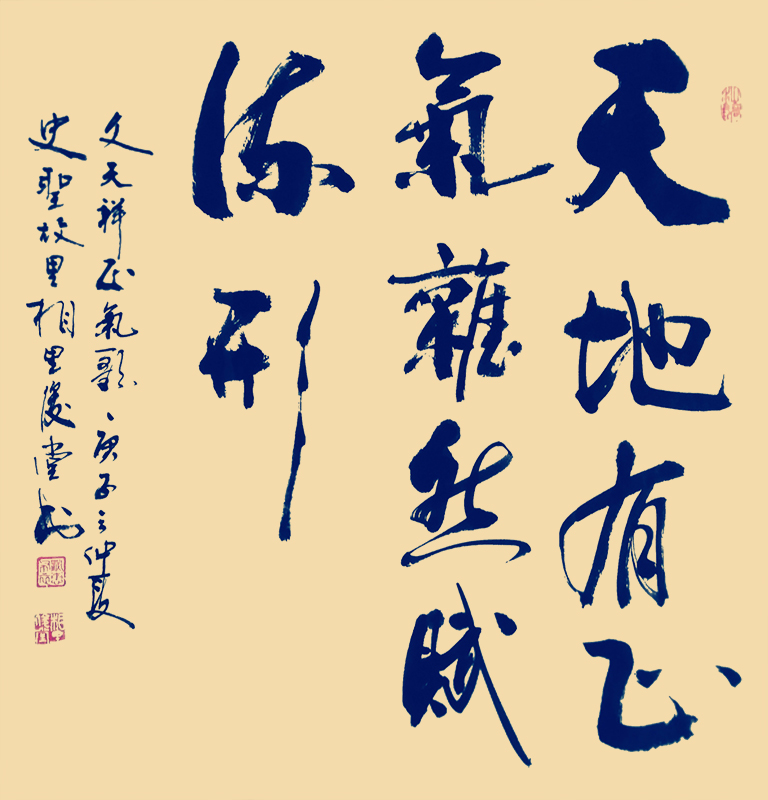 天地有正
氣雜然賦
流形
文天祥正氣歌、庚子之仲夏
史聖故里相里俊堂書